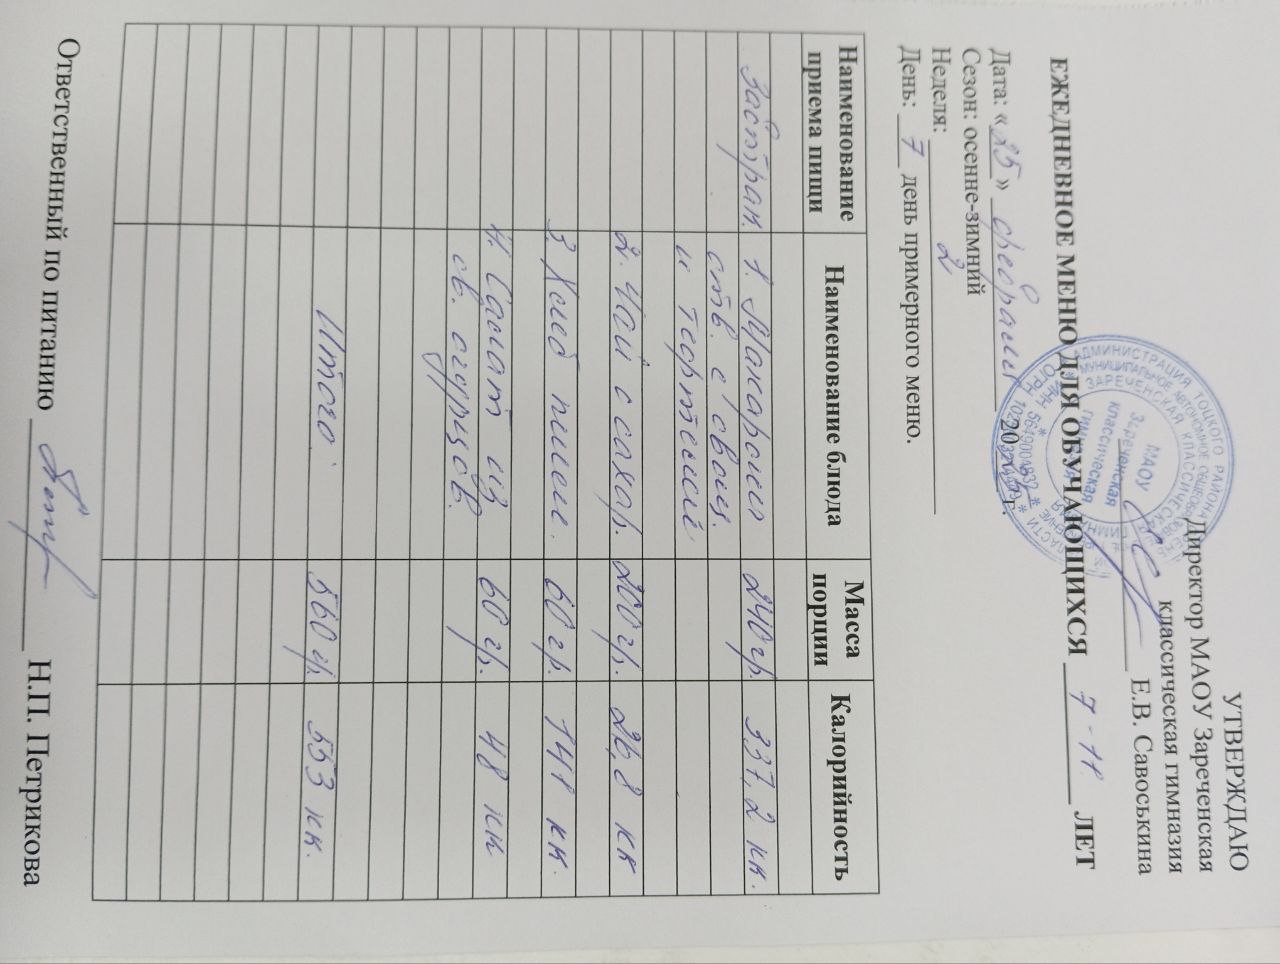 УТВЕРЖДАЮ
Директор МАОУ Зареченская
классическая гимназия
Е.В. Савоськина
МАОУ
Зареченская
классическая
гимназия
ЕЖЕДНЕВНОЕ МЕНЮ ДЛЯ ОБУЧАЮЩИХСЯ 7-11 ЛЕТ
Дата: «25» февраля 20 г.
Сезон: осенне-зимний
Неделя: 2
День: 7 день примерного меню.
Наименование приема пищи Наименование блюда Масса порции Калорийность
Завтрак 1. Макароны 240 гр. 337,2 кк.
отв. с овощ.
и тефтелей
2. Чай с сахар. 200 гр. 26,8 кк
3. Хлеб пшен. 60 гр. 141 кк.
4. Салат из 60 гр. 48 кк
св. огурцов.
Итого: 560 гр. 553 кк.
Ответственный по питанию Н.П. Петрикова